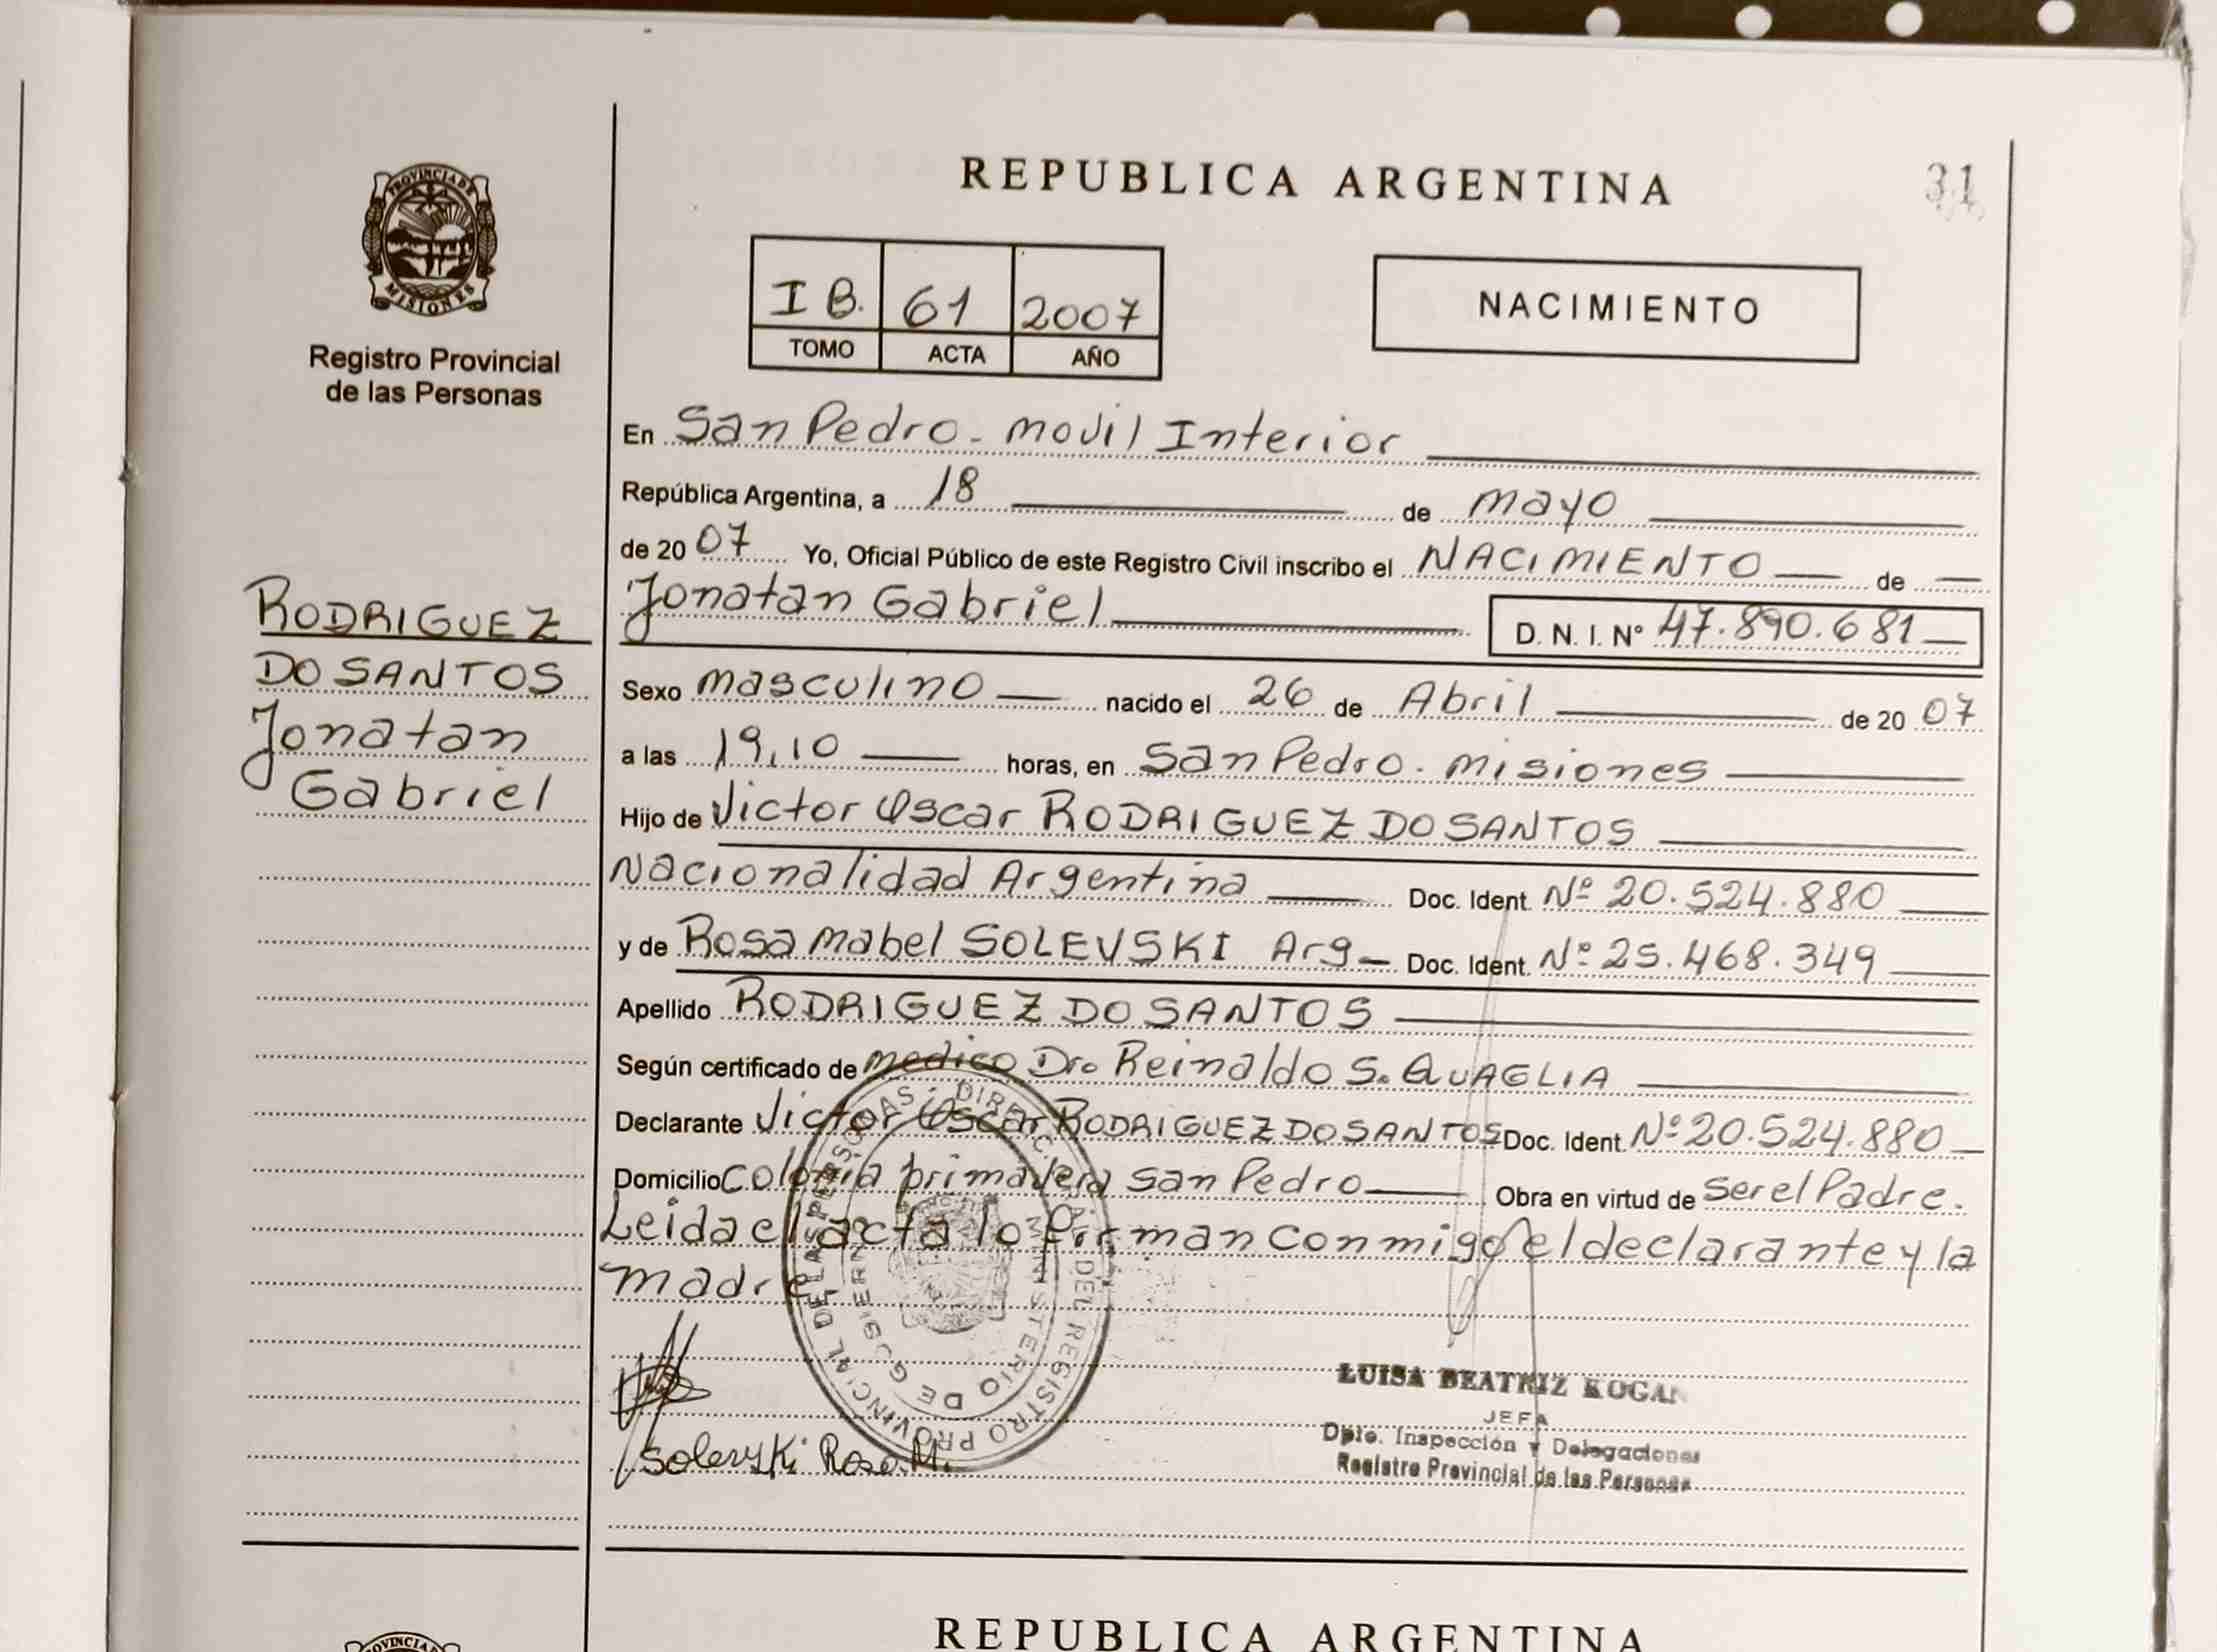 PROVINCIA DE
MISIONES
Registro Provincial
de las Personas
RODRIGUEZ
DO SANTOS
Jonatan
Gabriel
REPUBLICA ARGENTINA
31
I B. 61 2007
TOMO ACTA AÑO
NACIMIENTO
En San Pedro - movil Interior
República Argentina, a 18 de mayo
de 20 07 Yo, Oficial Público de este Registro Civil inscribo el NACIMIENTO de
Jonatan Gabriel D. N. I. Nº 47.890.681
Sexo masculino nacido el 26 de Abril de 20 07
a las 19,10 horas, en San Pedro - misiones
Hijo de Victor Oscar RODRIGUEZ DO SANTOS
Nacionalidad Argentina Doc. Ident. Nº 20.524.880
y de Rosa mabel SOLEVSKI Arg Doc. Ident. Nº 25.468.349
Apellido RODRIGUEZ DO SANTOS
Según certificado de medico Dr. Reinaldo S. QUAGLIA
Declarante Victor Oscar RODRIGUEZ DO SANTOS Doc. Ident. Nº 20.524.880
Domicilio Colonia primavera San Pedro Obra en virtud de ser el Padre.
Leida el acta lo firman conmigo el declarante y la
madre
DEL REGISTRO PROVINCIAL DE LAS PERSONAS
MINISTERIO DE GOBIERNO
Solevski Rosa M.
LUISA BEATRIZ KOGAN
JEFA
Dpto. Inspección y Delegaciones
Registro Provincial de las Personas
REPUBLICA ARGENTINA